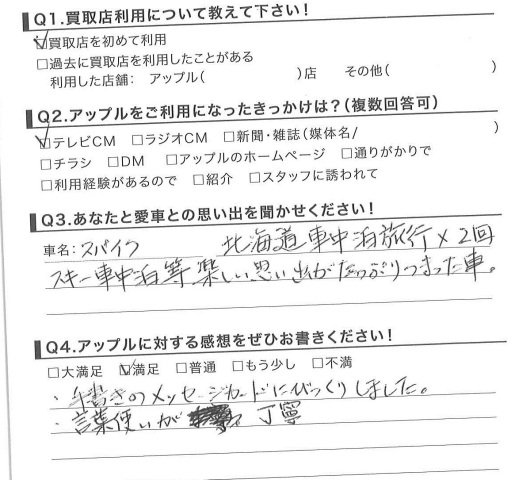 Q1.買取店利用について教えて下さい!
☑買取店を初めて利用
□過去に買取店を利用したことがある
利用した店舗: アップル( )店 その他( )
Q2.アップルをご利用になったきっかけは?(複数回答可)
☑テレビCM □ラジオCM □新聞・雑誌(媒体名/ )
□チラシ □DM □アップルのホームページ □通りがかりで
□利用経験があるので □紹介 □スタッフに誘われて
Q3.あなたと愛車との思い出を聞かせください!
車名:スパイク 北海道車中泊旅行×2回
スキー車中泊等楽しい思い出がたっぷりつまった車。
Q4.アップルに対する感想をぜひお書きください!
□大満足 ☑満足 □普通 □もう少し □不満
・手書きのメッセージカードにびっくりしました。
・言葉使いが 丁寧